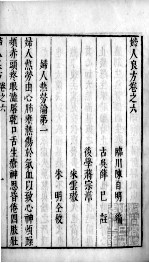 婦人良方卷之六
臨川陳自明編
古吳薛己註
後學蔣宗澹
朱雲徵
朱明全校
婦人熱勞論第一
婦人熱勞由心肺壅熱傷於氣血以致心神煩躁
頰赤頭疼眼澁脣乾口舌生瘡神思昏倦四肢壯